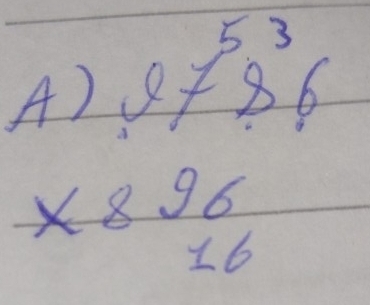 5 3
A) 9786
×896
16